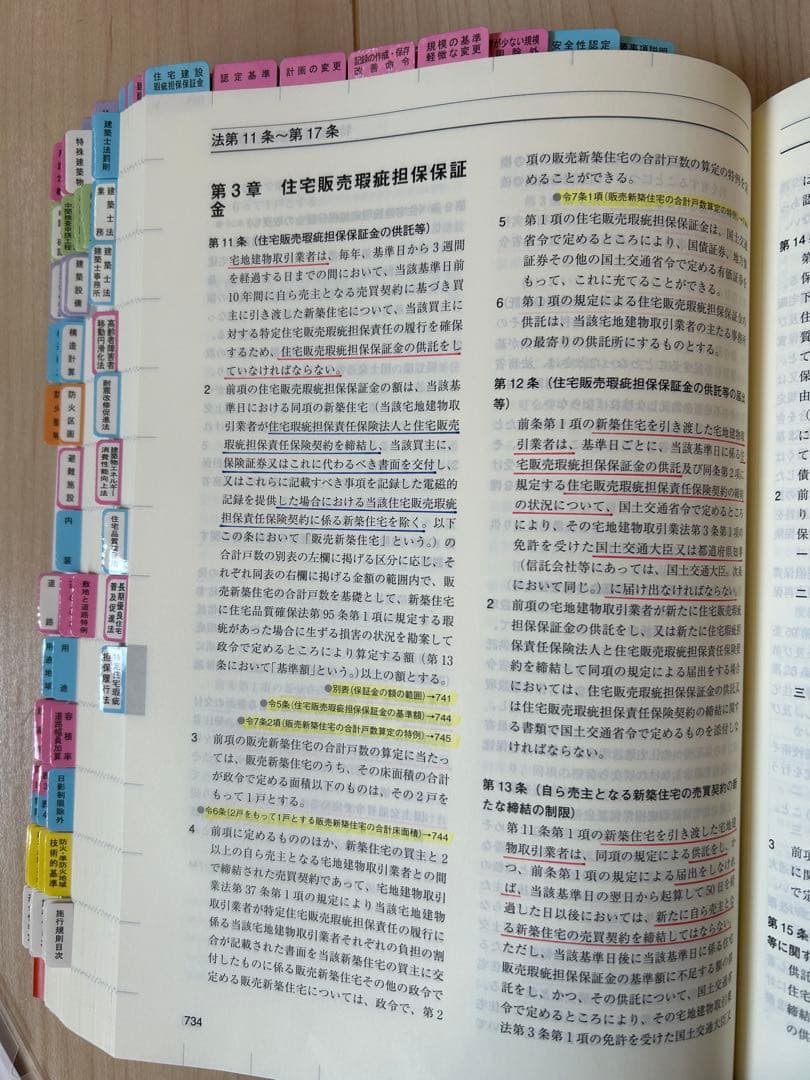 住宅建設
瑕疵担保保証金
認定基準
計画の変更
記録の作成・保存
改善命令
規模の基準
軽微な変更
が少ない規模
安全性認定
建築士法罰則
特殊建築物
建築士法
業務
中間検査申請工程
建築士法
建築士事務所
建築設備
高齢者障害者
移動円滑化法
構造計算
耐震改修促進法
防火区画
建築物エネルギー
消費性能向上法
避難施設
内装
敷地と道路特例
道路
長期優良住宅
普及促進法
用途
用途地域
特定住宅瑕疵
担保履行法
容積率
道路幅員加算
日影制限除外
防火・準防火地域
技術的基準
施行規則目次
法第11条〜第17条
第3章 住宅販売瑕疵担保保証
金
第11条（住宅販売瑕疵担保保証金の供託等）
宅地建物取引業者は、毎年、基準日から3週間
を経過する日までの間において、当該基準日前
10年間に自ら売主となる売買契約に基づき買
主に引き渡した新築住宅について、当該買主に
対する特定住宅販売瑕疵担保責任の履行を確保
するため、住宅販売瑕疵担保保証金の供託をし
ていなければならない。
2 前項の住宅販売瑕疵担保保証金の額は、当該基
準日における同項の新築住宅（当該宅地建物取
引業者が住宅瑕疵担保責任保険法人と住宅販売
瑕疵担保責任保険契約を締結し、当該買主に、
保険証券又はこれに代わるべき書面を交付し、
又はこれらに記載すべき事項を記録した電磁的
記録を提供した場合における当該住宅販売瑕疵
担保責任保険契約に係る新築住宅を除く。以下
この条において「販売新築住宅」という。）の
合計戸数の別表の左欄に掲げる区分に応じ、そ
れぞれ同表の右欄に掲げる金額の範囲内で、販
売新築住宅の合計戸数を基礎として、新築住宅
に住宅品質確保法第95条第1項に規定する瑕
疵があった場合に生ずる損害の状況を勘案して
政令で定めるところにより算定する額（第13
条において「基準額」という。）以上の額とする。
●別表（保証金の額の範囲）→741
●令5条（住宅販売瑕疵担保保証金の基準額）→744
●令7条2項（販売新築住宅の合計戸数算定の特例）→745
3 前項の販売新築住宅の合計戸数の算定に当たっ
ては、販売新築住宅のうち、その床面積の合計
が政令で定める面積以下のものは、その2戸を
もって1戸とする。
●令6条（2戸をもって1戸とする販売新築住宅の合計床面積）→744
4 前項に定めるもののほか、新築住宅の買主と2
以上の自ら売主となる宅地建物取引業者との間
で締結された売買契約であって、宅地建物取引
業法第37条第1項の規定により当該宅地建物
取引業者が特定住宅販売瑕疵担保責任の履行に
係る当該宅地建物取引業者それぞれの負担の割
合が記載された書面を当該新築住宅の買主に交
付したものに係る販売新築住宅その他の政令で
定める販売新築住宅については、政令で、第2
734
項の販売新築住宅の合計戸数の算定の特例を定
めることができる。
●令7条1項（販売新築住宅の合計戸数算定の特例）→
5 第1項の住宅販売瑕疵担保保証金は、国土交通
省令で定めるところにより、国債証券、地方債
証券その他の国土交通省令で定める有価証券を
もって、これに充てることができる。
6 第1項の規定による住宅販売瑕疵担保保証金の
供託は、当該宅地建物取引業者の主たる事務所
の最寄りの供託所にするものとする。
第12条（住宅販売瑕疵担保保証金の供託等の届出
等）
前条第1項の新築住宅を引き渡した宅地建物取
引業者は、基準日ごとに、当該基準日に係る住
宅販売瑕疵担保保証金の供託及び同条第2項に
規定する住宅販売瑕疵担保責任保険契約の締結
の状況について、国土交通省令で定めるところ
により、その宅地建物取引業法第3条第1項の
免許を受けた国土交通大臣又は都道府県知事
（信託会社等にあっては、国土交通大臣。次条
において同じ。）に届け出なければならない。
2 前項の宅地建物取引業者が新たに住宅販売瑕疵
担保保証金の供託をし、又は新たに住宅瑕疵担
保責任保険法人と住宅販売瑕疵担保責任保険契
約を締結して同項の規定による届出をする場合
においては、住宅販売瑕疵担保保証金の供託又
は住宅販売瑕疵担保責任保険契約の締結に関す
る書類で国土交通省令で定めるものを添付しな
ければならない。
第13条（自ら売主となる新築住宅の売買契約の新
たな締結の制限）
第11条第1項の新築住宅を引き渡した宅地建
物取引業者は、同項の規定による供託をし、か
つ、前条第1項の規定による届出をしなけれ
ば、当該基準日の翌日から起算して50日を経
過した日以後においては、新たに自ら売主とな
る新築住宅の売買契約を締結してはならない。
ただし、当該基準日後に当該基準日に係る住宅
販売瑕疵担保保証金の基準額に不足する額の供
託をし、かつ、その供託について、国土交通省
令で定めるところにより、その宅地建物取引業
法第3条第1項の免許を受けた国土交通大臣又
第14
3 前
第15条
等に関